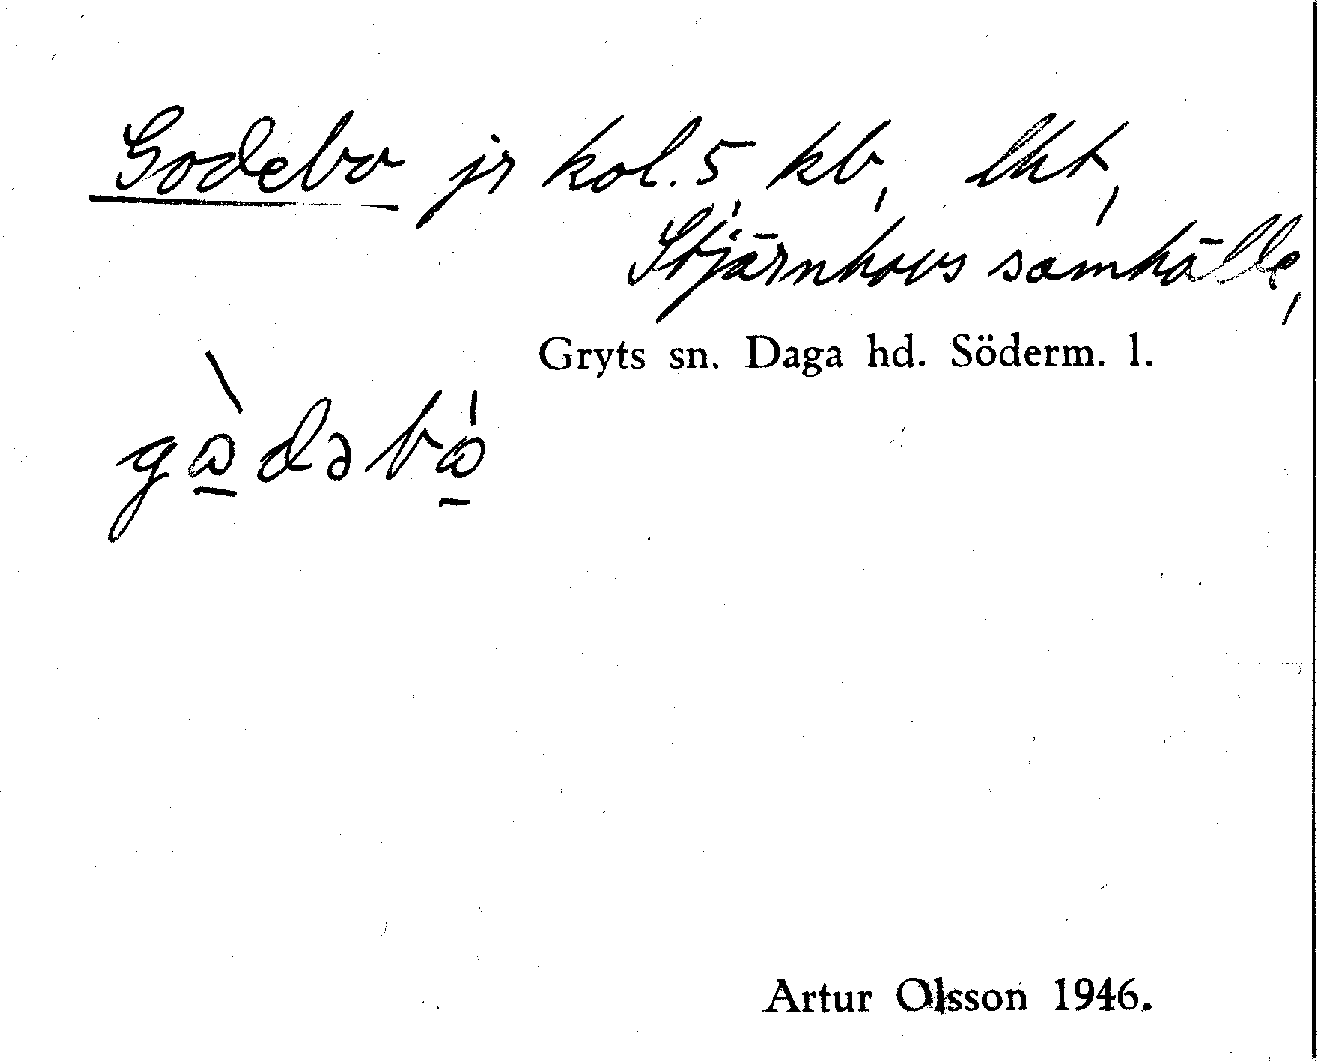 Godebo jr kol. 5, kb, lht,
Stjärnhovs samhälle,
Gryts sn. Daga hd. Söderm. l.
gòdəbó
Artur Olsson 1946.